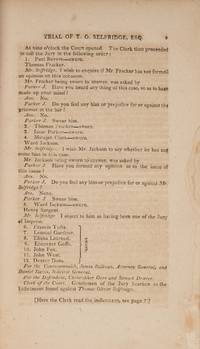 TRIAL OF T. O. SELFRIDGE, ESQ.
At nine o'clock the Court opened. The Clerk then proceeded
to call the Jury in the following order:
1. Paul Revere—sworn.
Thomas Fracker.
Mr. Selfridge. I wish to enquire if Mr. Fracker has not formed
an opinion on this occasion.
Mr. Fracker being sworn to answer, was asked by
Parker J. Have you heard any thing of this case, so as to have
made up your mind?
Ans. No.
Parker J. Do you feel any bias or prejudice for or against the
prisoner at the bar?
Ans. No.
Parker J. Swear him.
2. Thomas Fracker—sworn.
Ward Jackson.
Mr. Selfridge. I wish Mr. Jackson to say whether he has not
some bias in this case.
Mr. Jackson being sworn to answer, was asked by
Parker J. Have you formed any opinion as to the issue of
this cause?
Ans. No.
Parker J. Do you feel any bias or prejudice for or against Mr.
Selfridge?
Ans. None.
Parker J. Swear him.
5. Ward Jackson—sworn.
Henry Sargent.
Mr. Selfridge. I object to him as having been one of the Jury
of Inquest.
6. Francis Tufts.
7. Lemuel Gardner.
9. Ebenezer Goff.
10. John Fox.
11. John West.
For the Commonwealth, James Sullivan, Attorney General, and
Daniel Davis, Solicitor General.
For the Defendant, Christopher Gore and Samuel Dexter.
Clerk of the Court. Gentlemen of the Jury hearken to the
Indictment found against Thomas Oliver Selfridge.
[Here the Clerk read the indictment, see page 7.]